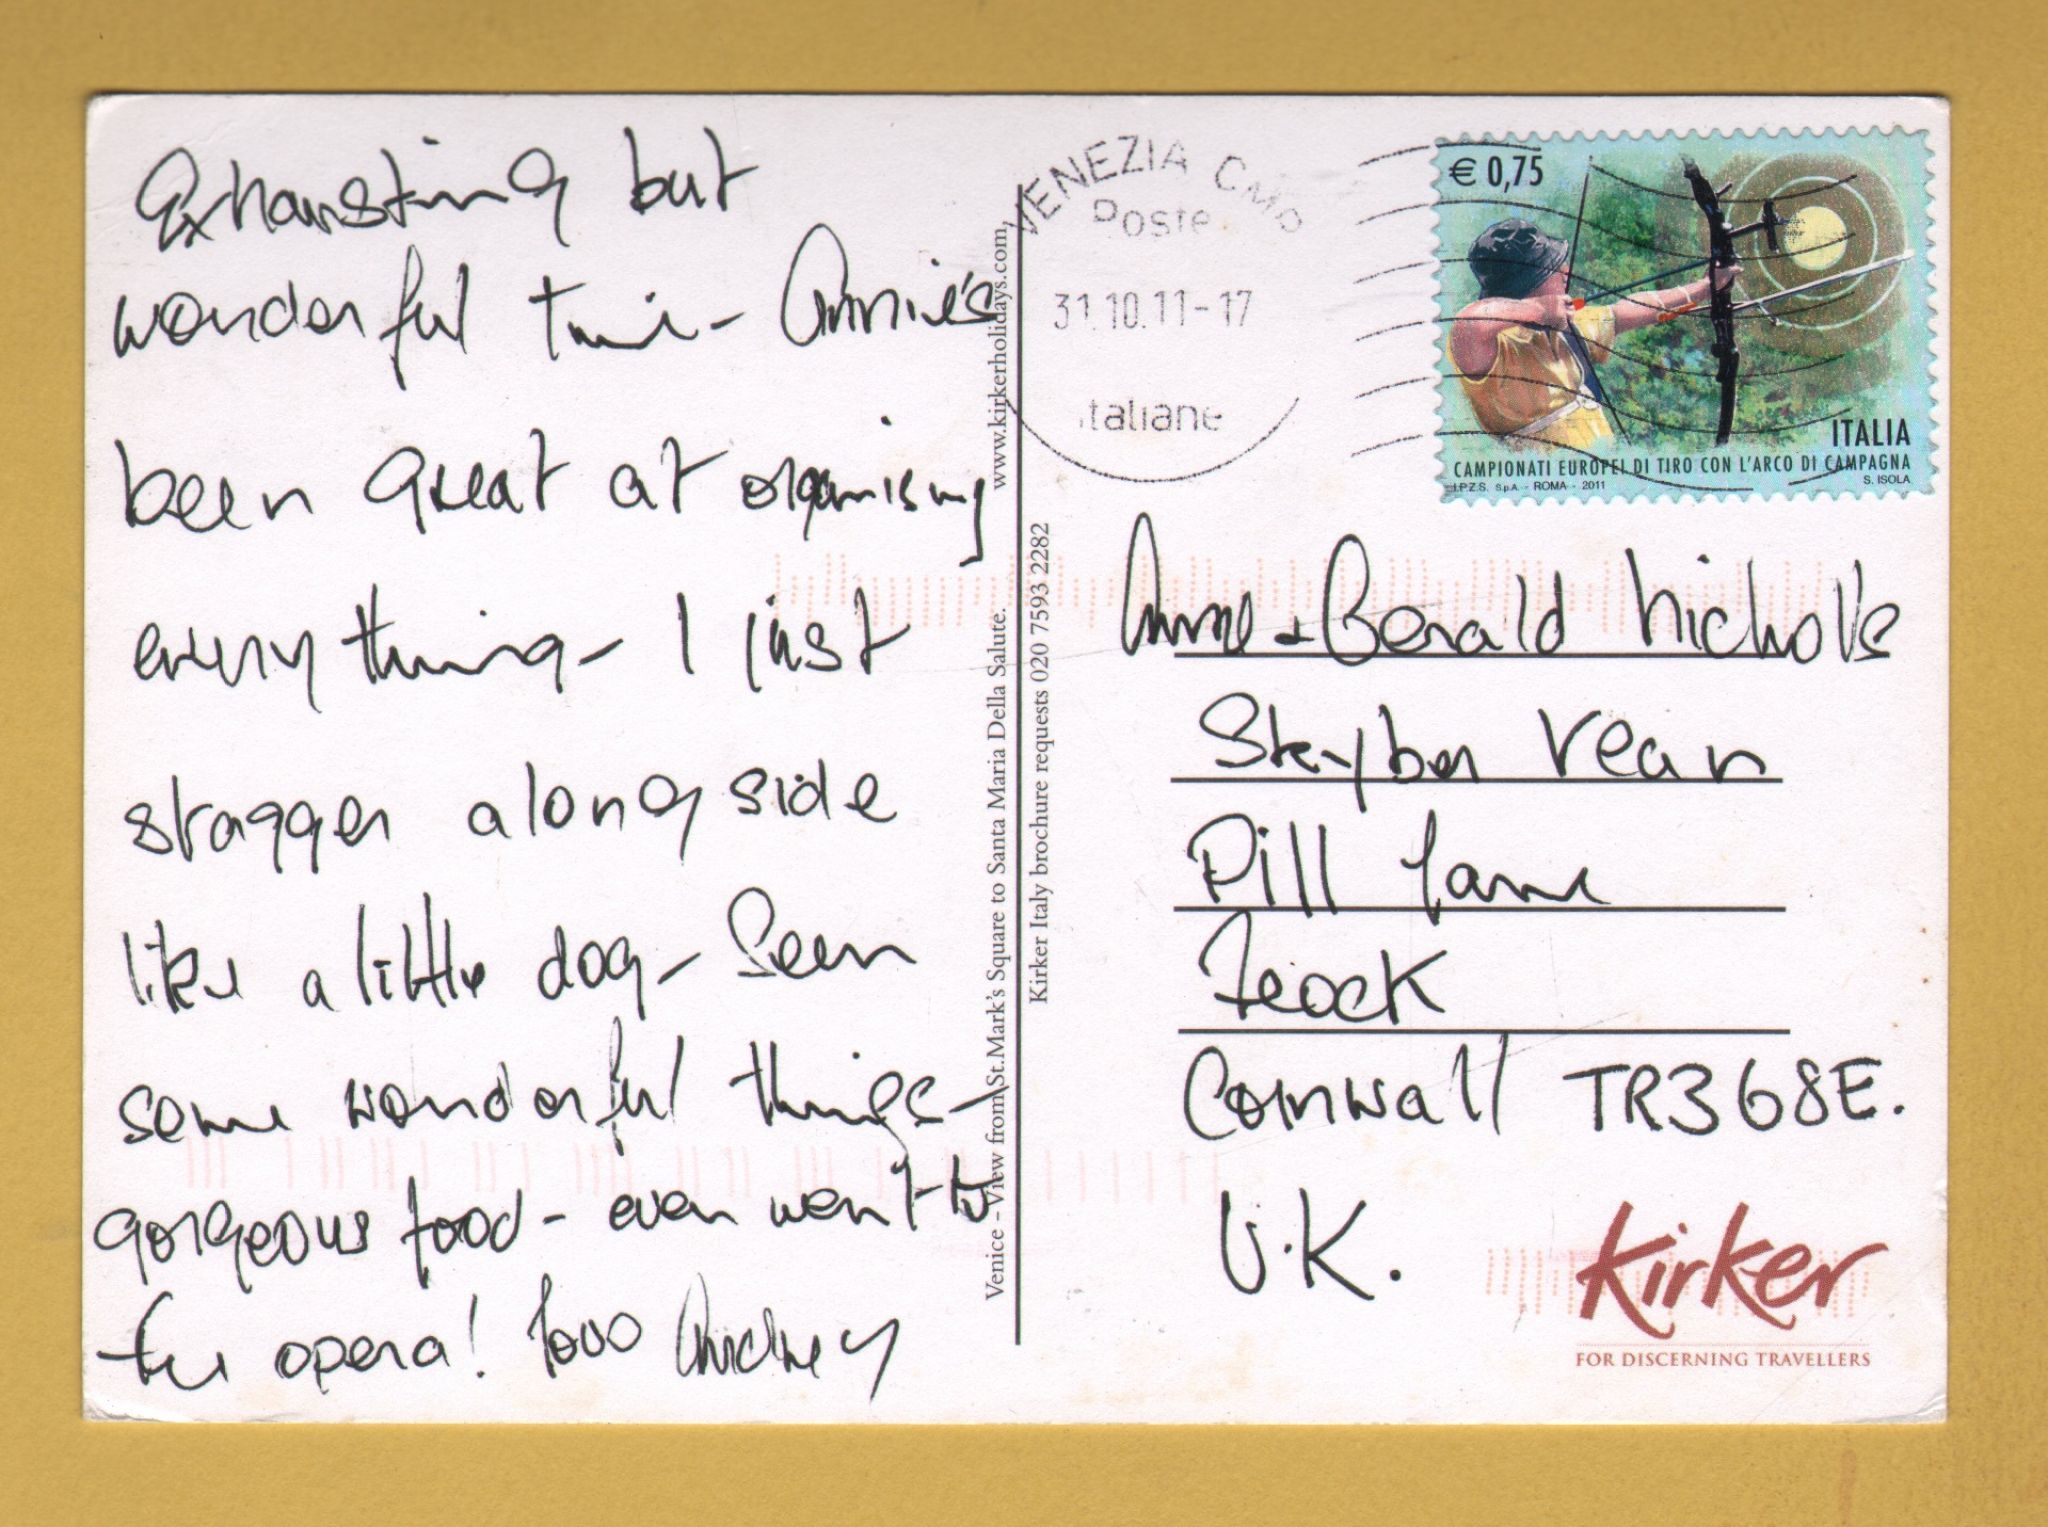 Exhausting but
wonderful time - Annie's
been great at organising
everything - I just
stagger along side
like a little dog - Seen
some wonderful things -
gorgeous food - even went to
the opera! love
Venice - View from St.Mark's Square to Santa Maria Della Salute. www.kirkerholidays.com
Kirker Italy brochure requests 020 7593 2282
VENEZIA CMP
Poste
31.10.11-17
italiane
€ 0,75
ITALIA
CAMPIONATI EUROPEI DI TIRO CON L'ARCO DI CAMPAGNA
I.P.Z.S. S.p.A. - ROMA - 2011 S. ISOLA
Anne + Gerald Nicholls
Skyber Vean
Pill Lane
Feock
Cornwall TR3 6SE.
U.K.
Kirker
FOR DISCERNING TRAVELLERS